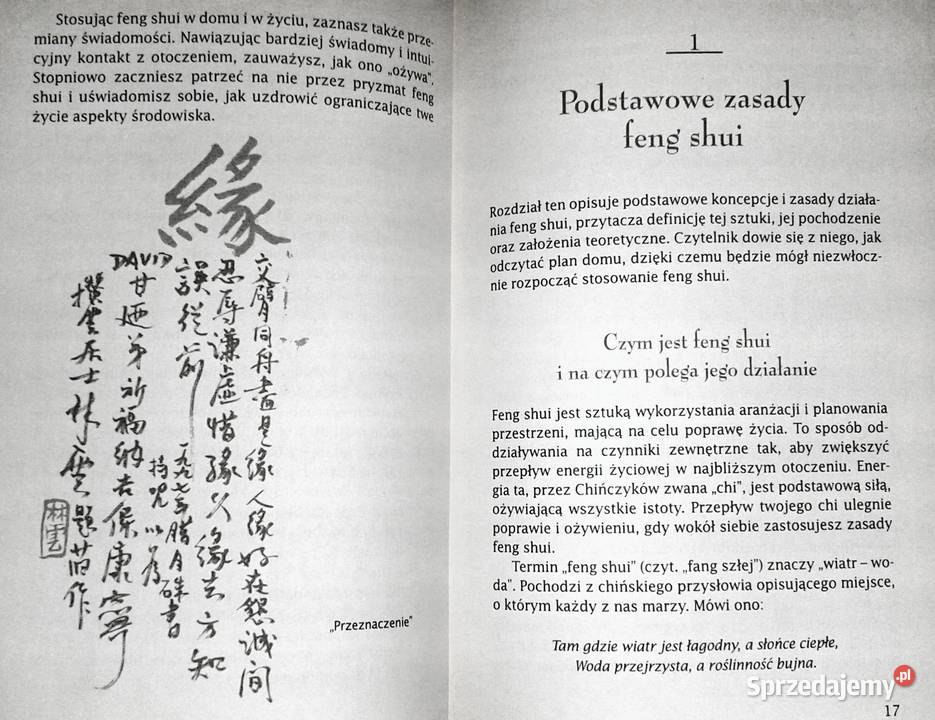 Stosując feng shui w domu i w życiu, zaznasz także prze-
miany świadomości. Nawiązując bardziej świadomy i intui-
cyjny kontakt z otoczeniem, zauważysz, jak ono „ożywa".
Stopniowo zaczniesz patrzeć na nie przez pryzmat feng
shui i uświadomisz sobie, jak uzdrowić ograniczające twe
życie aspekty środowiska.
緣
交臂同舟盡是緣人緣好在誠間
忍辱謙虛惜緣久緣去方知
誤從前
一九九七年臘月硃書
持咒以為
DAVID甘廼弟祈福納吉保康寧
雲居士林雲題舊作
林雲
„Przeznaczenie"
1
Podstawowe zasady
feng shui
Rozdział ten opisuje podstawowe koncepcje i zasady działa-
nia feng shui, przytacza definicję tej sztuki, jej pochodzenie
oraz założenia teoretyczne. Czytelnik dowie się z niego, jak
odczytać plan domu, dzięki czemu będzie mógł niezwłocz-
nie rozpocząć stosowanie feng shui.
Czym jest feng shui
i na czym polega jego działanie
Feng shui jest sztuką wykorzystania aranżacji i planowania
przestrzeni, mającą na celu poprawę życia. To sposób od-
działywania na czynniki zewnętrzne tak, aby zwiększyć
przepływ energii życiowej w najbliższym otoczeniu. Ener-
gia ta, przez Chińczyków zwana „chi", jest podstawową siłą,
ożywiającą wszystkie istoty. Przepływ twojego chi ulegnie
poprawie i ożywieniu, gdy wokół siebie zastosujesz zasady
feng shui.
Termin „feng shui" (czyt. „fang szłej") znaczy „wiatr – wo-
da". Pochodzi z chińskiego przysłowia opisującego miejsce,
o którym każdy z nas marzy. Mówi ono:
Tam gdzie wiatr jest łagodny, a słońce ciepłe,
Woda przejrzysta, a roślinność bujna.
Sprzedajemy.pl
17